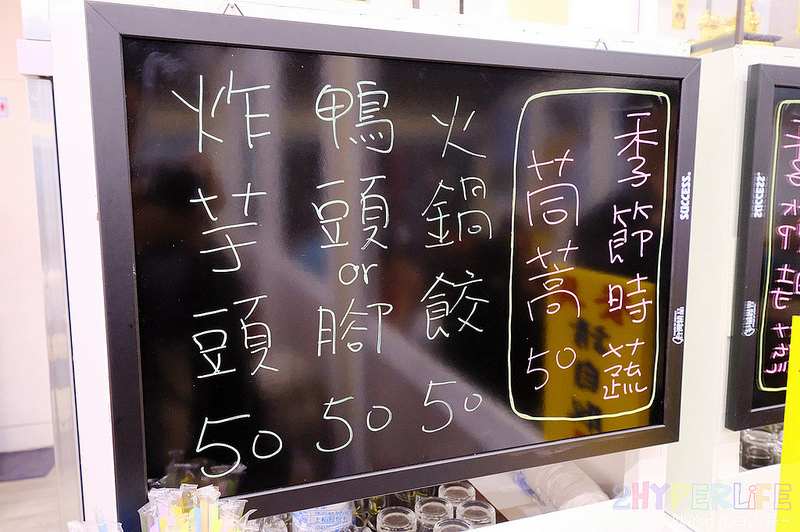 季節時蔬
茼蒿 50
火鍋餃 50
鴨頭or腳 50
炸芋頭 50
SUCCESS.
SUCCESS
請自
2HYPERLIFE